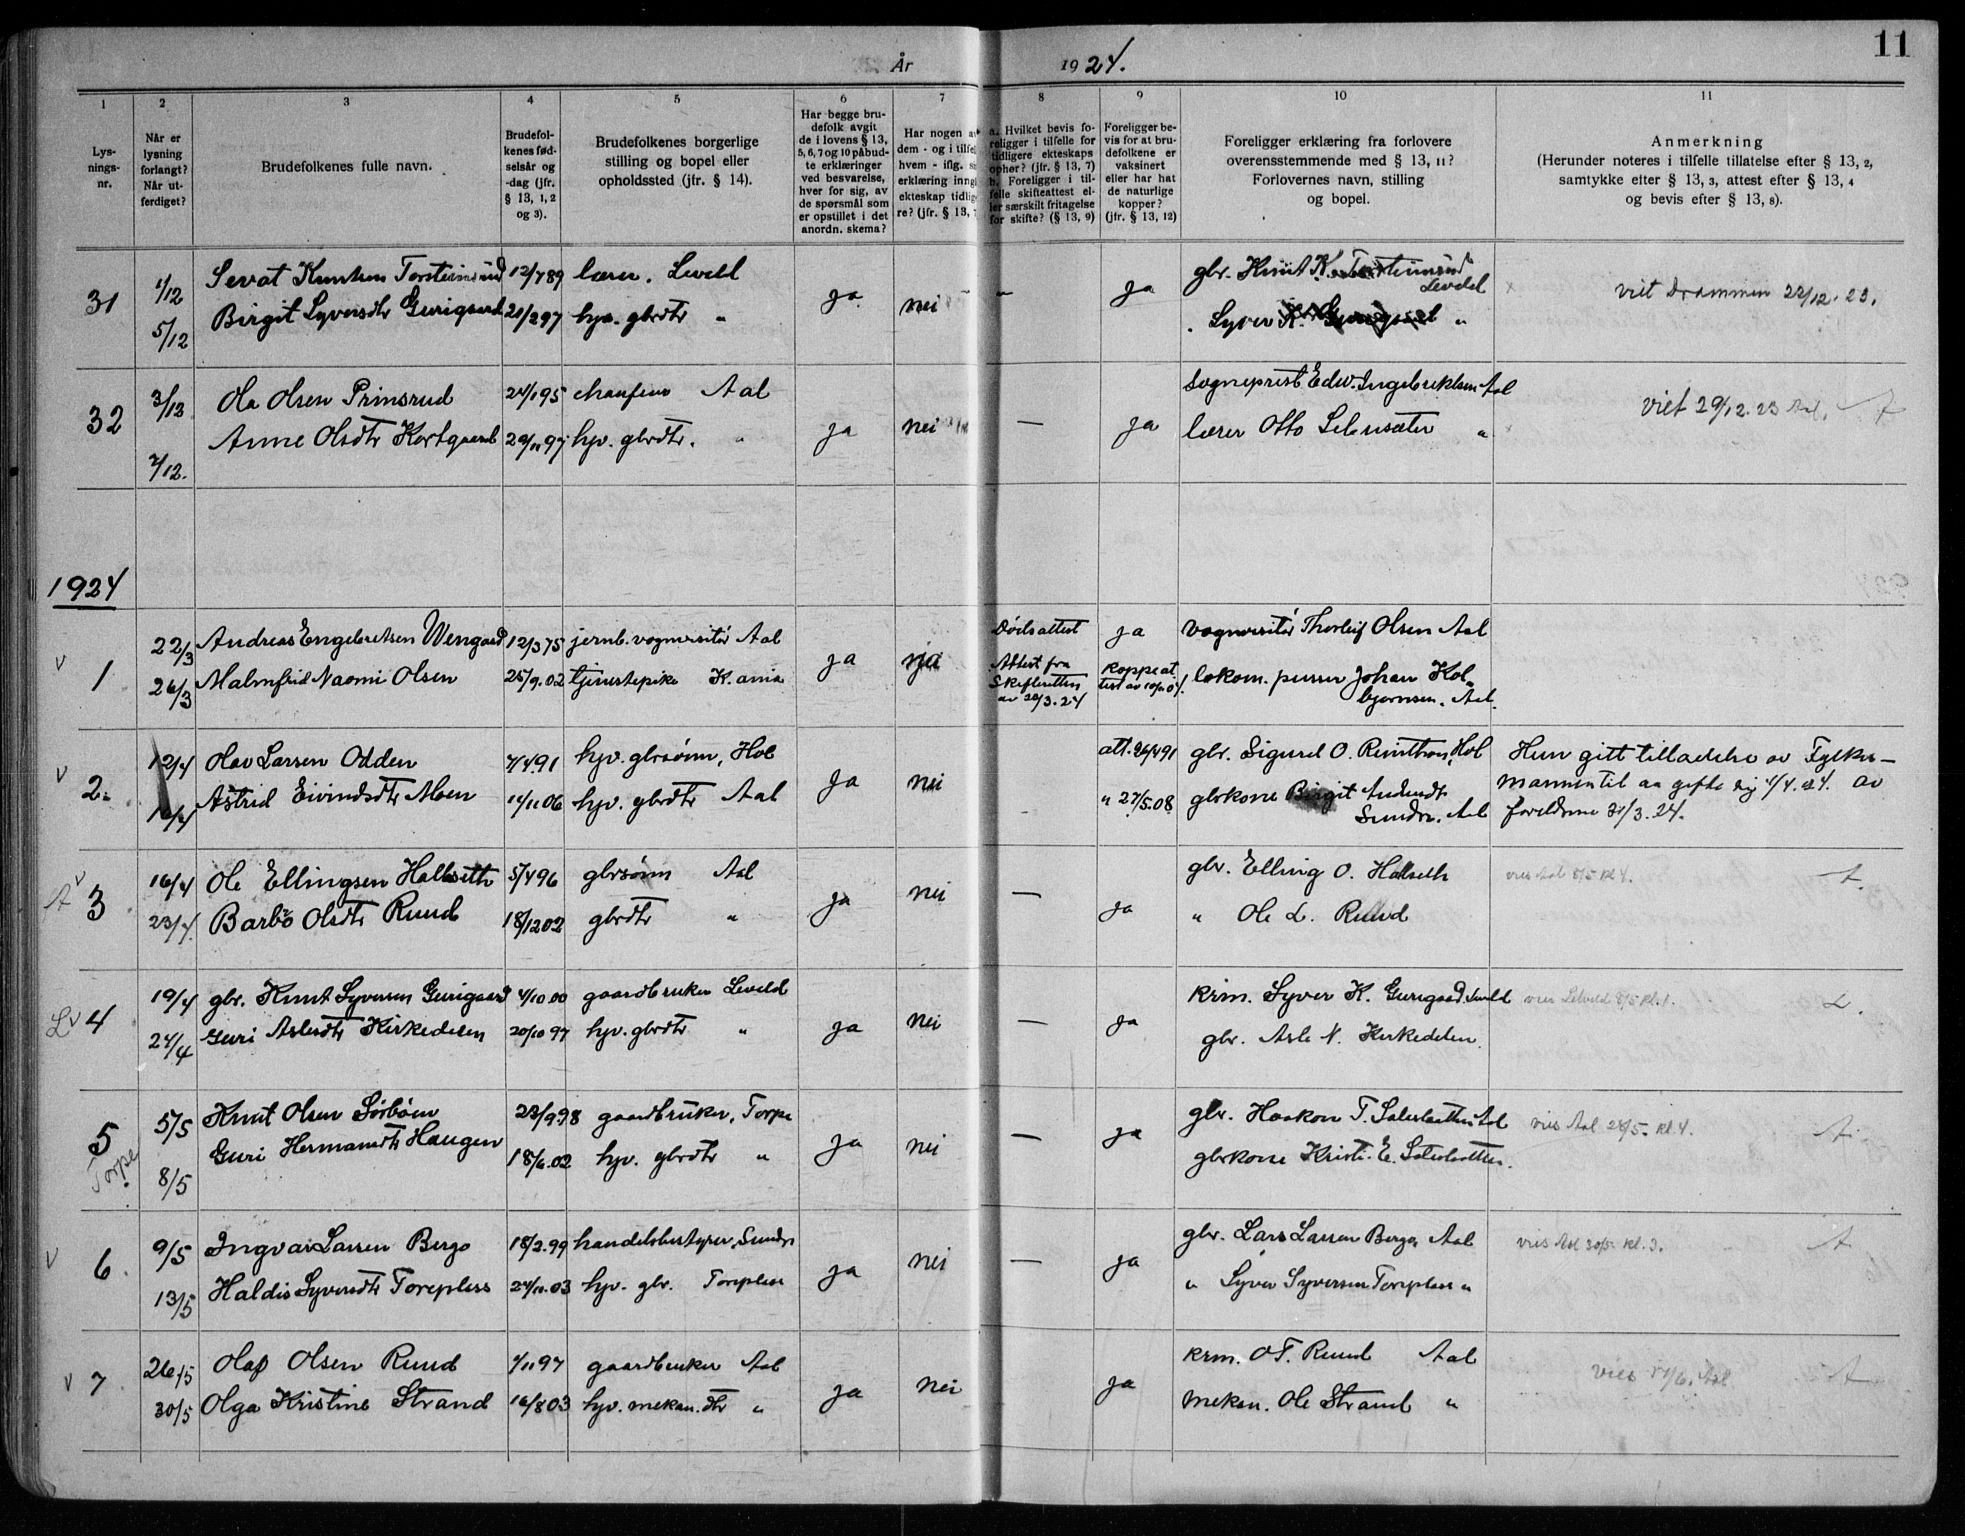 11
År 1924.
1 2 3 4 5 6 7 8 9 10 11
Lysnings-nr.
Når er lysning forlangt? Når utferdiget?
Brudefolkenes fulle navn.
Brudefolkenes fødselsår og -dag (jfr. § 13, 1, 2 og 3).
Brudefolkenes borgerlige stilling og bopel eller opholdssted (jfr. § 14).
Har begge brudefolk avgit de i lovens § 13, 5, 6, 7 og 10 påbudte erklæringer ved besvarelse, hver for sig, av de spørsmål som er opstillet i det anordn. skema?
Har nogen av dem - og i tilfel hvem - iflg. s erklæring inng ekteskap tidlig re? (jfr. § 13, 7
a. Hvilket bevis foreligger i tilfelle for tidligere ekteskaps ophør? (jfr. § 13, 7) b. Foreligger i tilfelle skifteattest eller særskilt fritagelse for skifte? (§ 13, 9)
Foreligger bevis for at brudefolkene er vaksinert eller har hat de naturlige kopper? (jfr. § 13, 12)
Foreligger erklæring fra forlovere overensstemmende med § 13, 11? Forlovernes navn, stilling og bopel.
Anmerkning (Herunder noteres i tilfelle tillatelse efter § 13, 2, samtykke efter § 13, 3, attest efter § 13, 4 og bevis efter § 13, 8).
31 1/12 Sevat Knutsen Torsteinsrud 12/7 89 lærer. Leveld ja nei " ja glr. Knut K. Torsteinsrud Leveld viet Drammen 22/12. 23.
5/12 Birgit Syversdtr Gurigaard 21/2 97 hjv. glrdtr " . Syver K. Gurigaard "
32 3/12 Ola Olsen Prinsrud 24/1 95 chauffeur Aal ja nei — ja Sogneprest Edw. Ingebriktsen Aal viet 29/12. 23 Aal. A
7/12. Anne Olsdtr Kortgaard 29/11 97 hjv. glrdtr. " lærer Otto "
1924
v 1 22/3 Andreas Engebretsen Wengaard 12/3 75 jernb. vognvisitør Aal ja Dødsattest ja vognvisitør Thorleif Olsen Aal
26/3 Malmfrid Naomi Olsen 25/9. 02 tjenestepike K.ania Attest fra Skifteretten av 20/3. 24 koppeattest av lokom. pusser Johan Kolbjørnsen. Aal.
v 2. 12/4 Olav Larsen Odden 7/4 91 hjv. glrsønn, Hol ja nei att. 26/4 91 glr. Sigurd O. Hol Hun gitt tilladelse av Fylkesmannen til aa gifte sig 4/4. 24. av
16/4 Astrid Eivindsdtr Moen 14/11 06 hjv. glrdtr Aal " 27/5. 08 glrkone Birgit Sundre. Aal foreldrene 31/3. 24.
A v 3 16/4 Ole Ellingsen Hallseth 5/4 96 glrsønn Aal ja nei — ja glr. Elling O. Halseth vies Aal 8/5 kl 4. A.
23/4. Barbo Olsdtr Ruud 18/12 02 glrdtr " " Ole L. Ruud
L v 4 19/4 glr. Knut Syversen Gurigaard 4/10 00 gaardbruker Leveld ja nei — ja krm. Syver K. Gurigaard, Leveld vies Leveld 8/5 kl. 1. L.
24/4 Guri Aslesdtr Kirkedelen 20/10 97 hjv. glrdtr " glr. Asle N. Kirkedelen.
5 Torpe. 5/5 Knut Olsen Sørbøen 23/9. 98 gaardbruker, Torpe ja nei — ja glr. Haakon T. Aal vies Aal 28/5. kl. 4. A.
8/5 Guri Hermansdtr Haugen 18/6. 02 hjv. glrdtr " glrkone Kristi E.
v 6. 9/5 Ingvar Larsen Bergo 18/2. 99 handelsbestyrer, Sundre ja nei — ja glr. Lars Larsen Bergo Aal vies Aal 20/5. kl. 3. A
13/5 Haldis Syversdtr Torepless 24/11. 03 hjv. glr. Torepless " Syver Syversen Torepless "
v 7. 26/5 Olaf Olsen Ruud 1/11 97 gaardbruker Aal ja nei ja krm. O T. Ruud Aal vies Aal A
30/5 Olga Kristine Strand 16/8 03 hjv. mekan. dtr " mekan. Ole Strand "